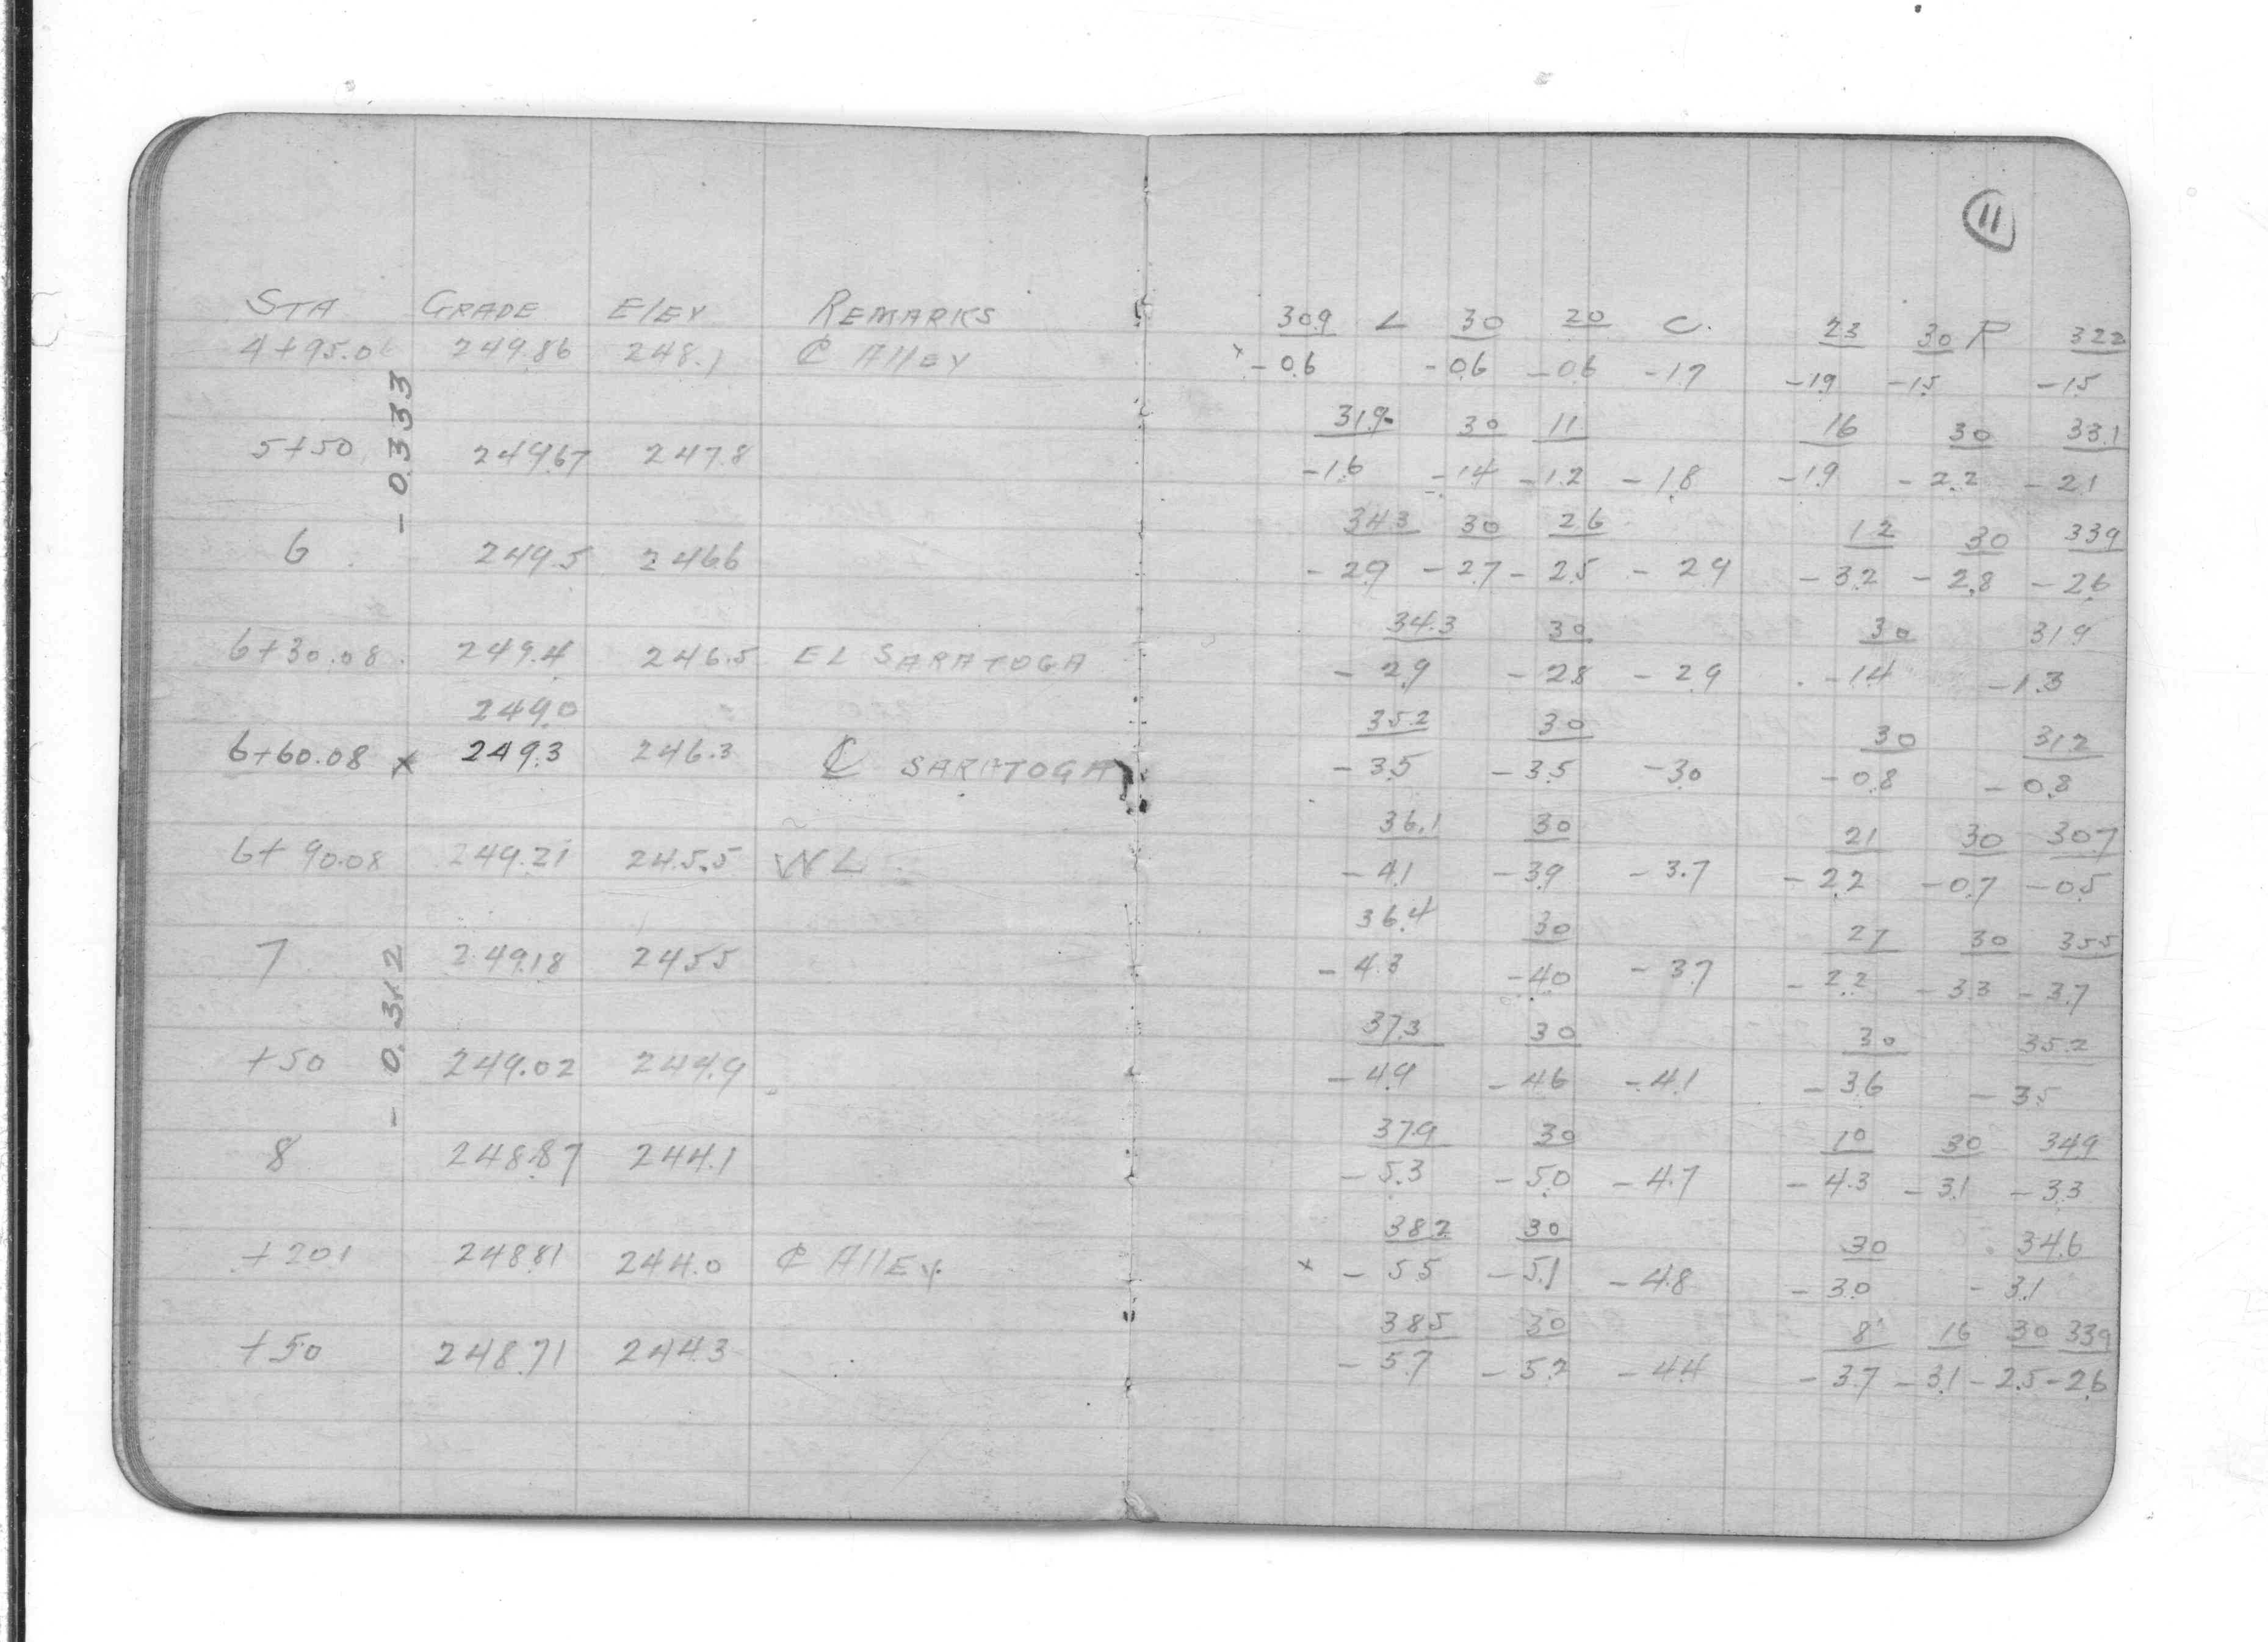 STA GRADE Elev REMARKS
4+95.06 249.86 248.1 ℄ Alley
- 0.333
5+50 249.67 247.8
6 249.5 246.6
6+30.08 249.4 246.5 EL SARATOGA
249.0
6+60.08 x 249.3 246.3 ℄ SARATOGA
6+90.08 249.21 245.5 WL
7 249.18 245.5
- 0.312
+50 249.02 244.9
8 248.87 244.1
+20.1 248.81 244.0 ℄ Alley
+50 248.71 244.3
11
30.9 L 30 20 C. 23 30 R 32.2
x -0.6 -0.6 -0.6 -1.7 -1.9 -1.5 -1.5
31.9 30 11 16 30 33.1
-1.6 -1.4 -1.2 -1.8 -1.9 -2.2 -2.1
34.3 30 26 12 30 33.9
-2.9 -2.7 -2.5 -2.9 -3.2 -2.8 -2.6
34.3 30 30 31.9
-2.9 -2.8 -2.9 -1.4 -1.3
35.2 30 30 31.2
-3.5 -3.5 -3.0 -0.8 -0.8
36.1 30 21 30 30.7
-4.1 -3.9 -3.7 -2.2 -0.7 -0.5
36.4 30 27 30 35.5
-4.3 -4.0 -3.7 -2.2 -3.3 -3.7
37.3 30 30 35.2
-4.9 -4.6 -4.1 -3.6 -3.5
37.9 30 10 30 34.9
-5.3 -5.0 -4.7 -4.3 -3.1 -3.3
38.2 30 30 34.6
x -5.5 -5.1 -4.8 -3.0 -3.1
38.5 30 8' 16 30 33.9
-5.7 -5.2 -4.4 -3.7 -3.1 -2.5 -2.6